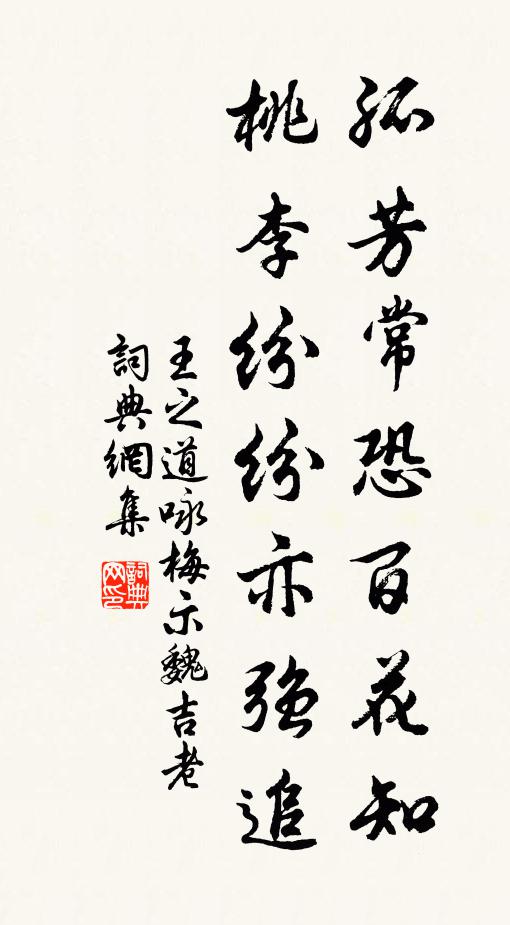 孤芳常恐百花知
桃李紛紛亦強追
王之道咏梅示魏吉老
詞典網集
詞典网印